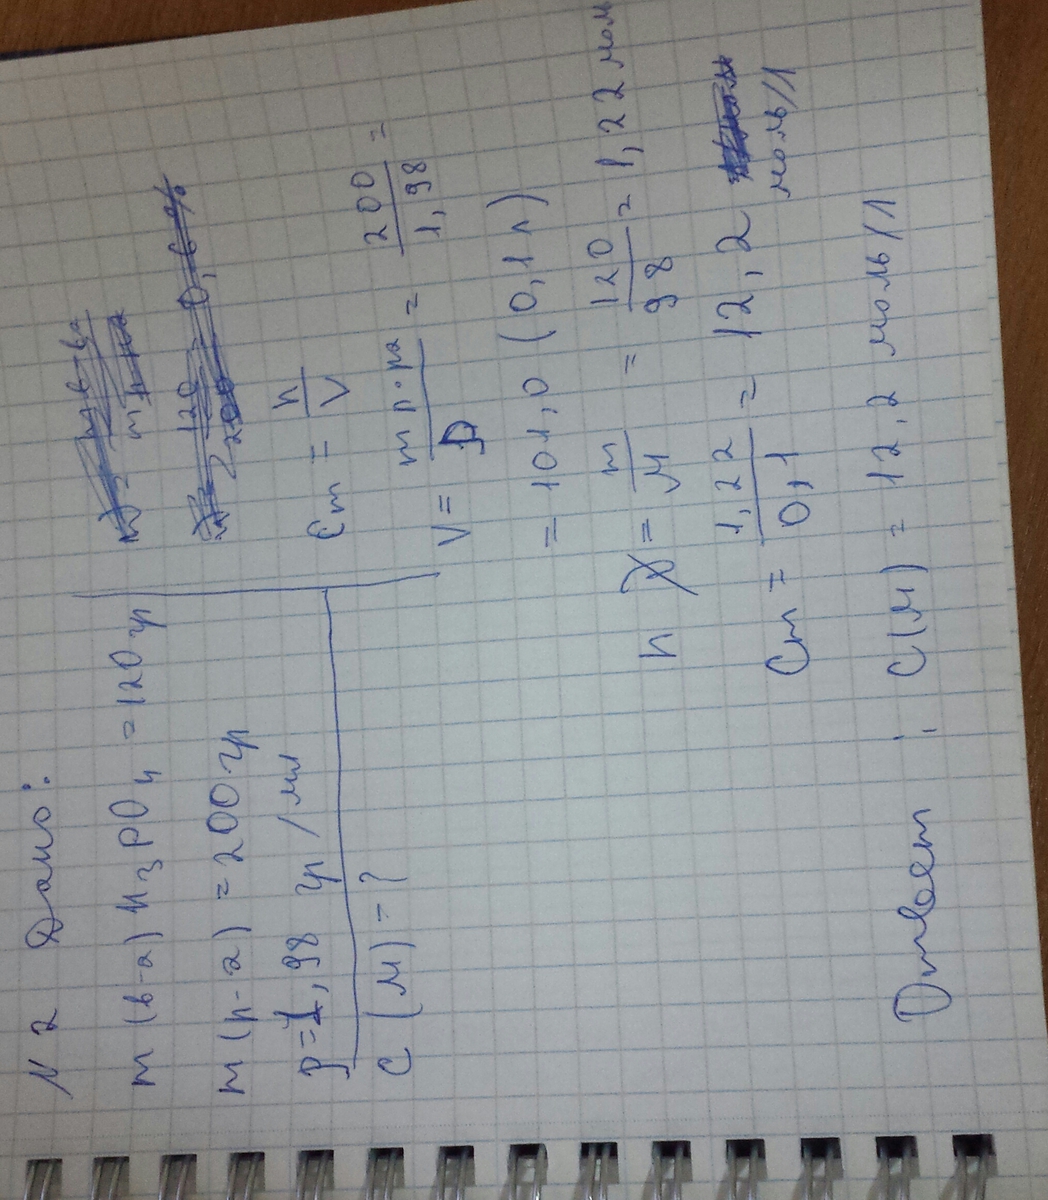 N 2 Дано:
m (в-а) H3PO4 = 120 гр
m (р-а) = 200 гр
ρ = 1,98 гр/мл
C (м) - ?
Cm = n / V
V = m р-ра / ρ = 200 / 1,98 =
= 101,0 (0,1 л)
n = m / M = 120 / 98 = 1,22 моль
Cm = 1,22 / 0,1 = 12,2
моль/л
Ответ: C(м) = 12,2 моль/л